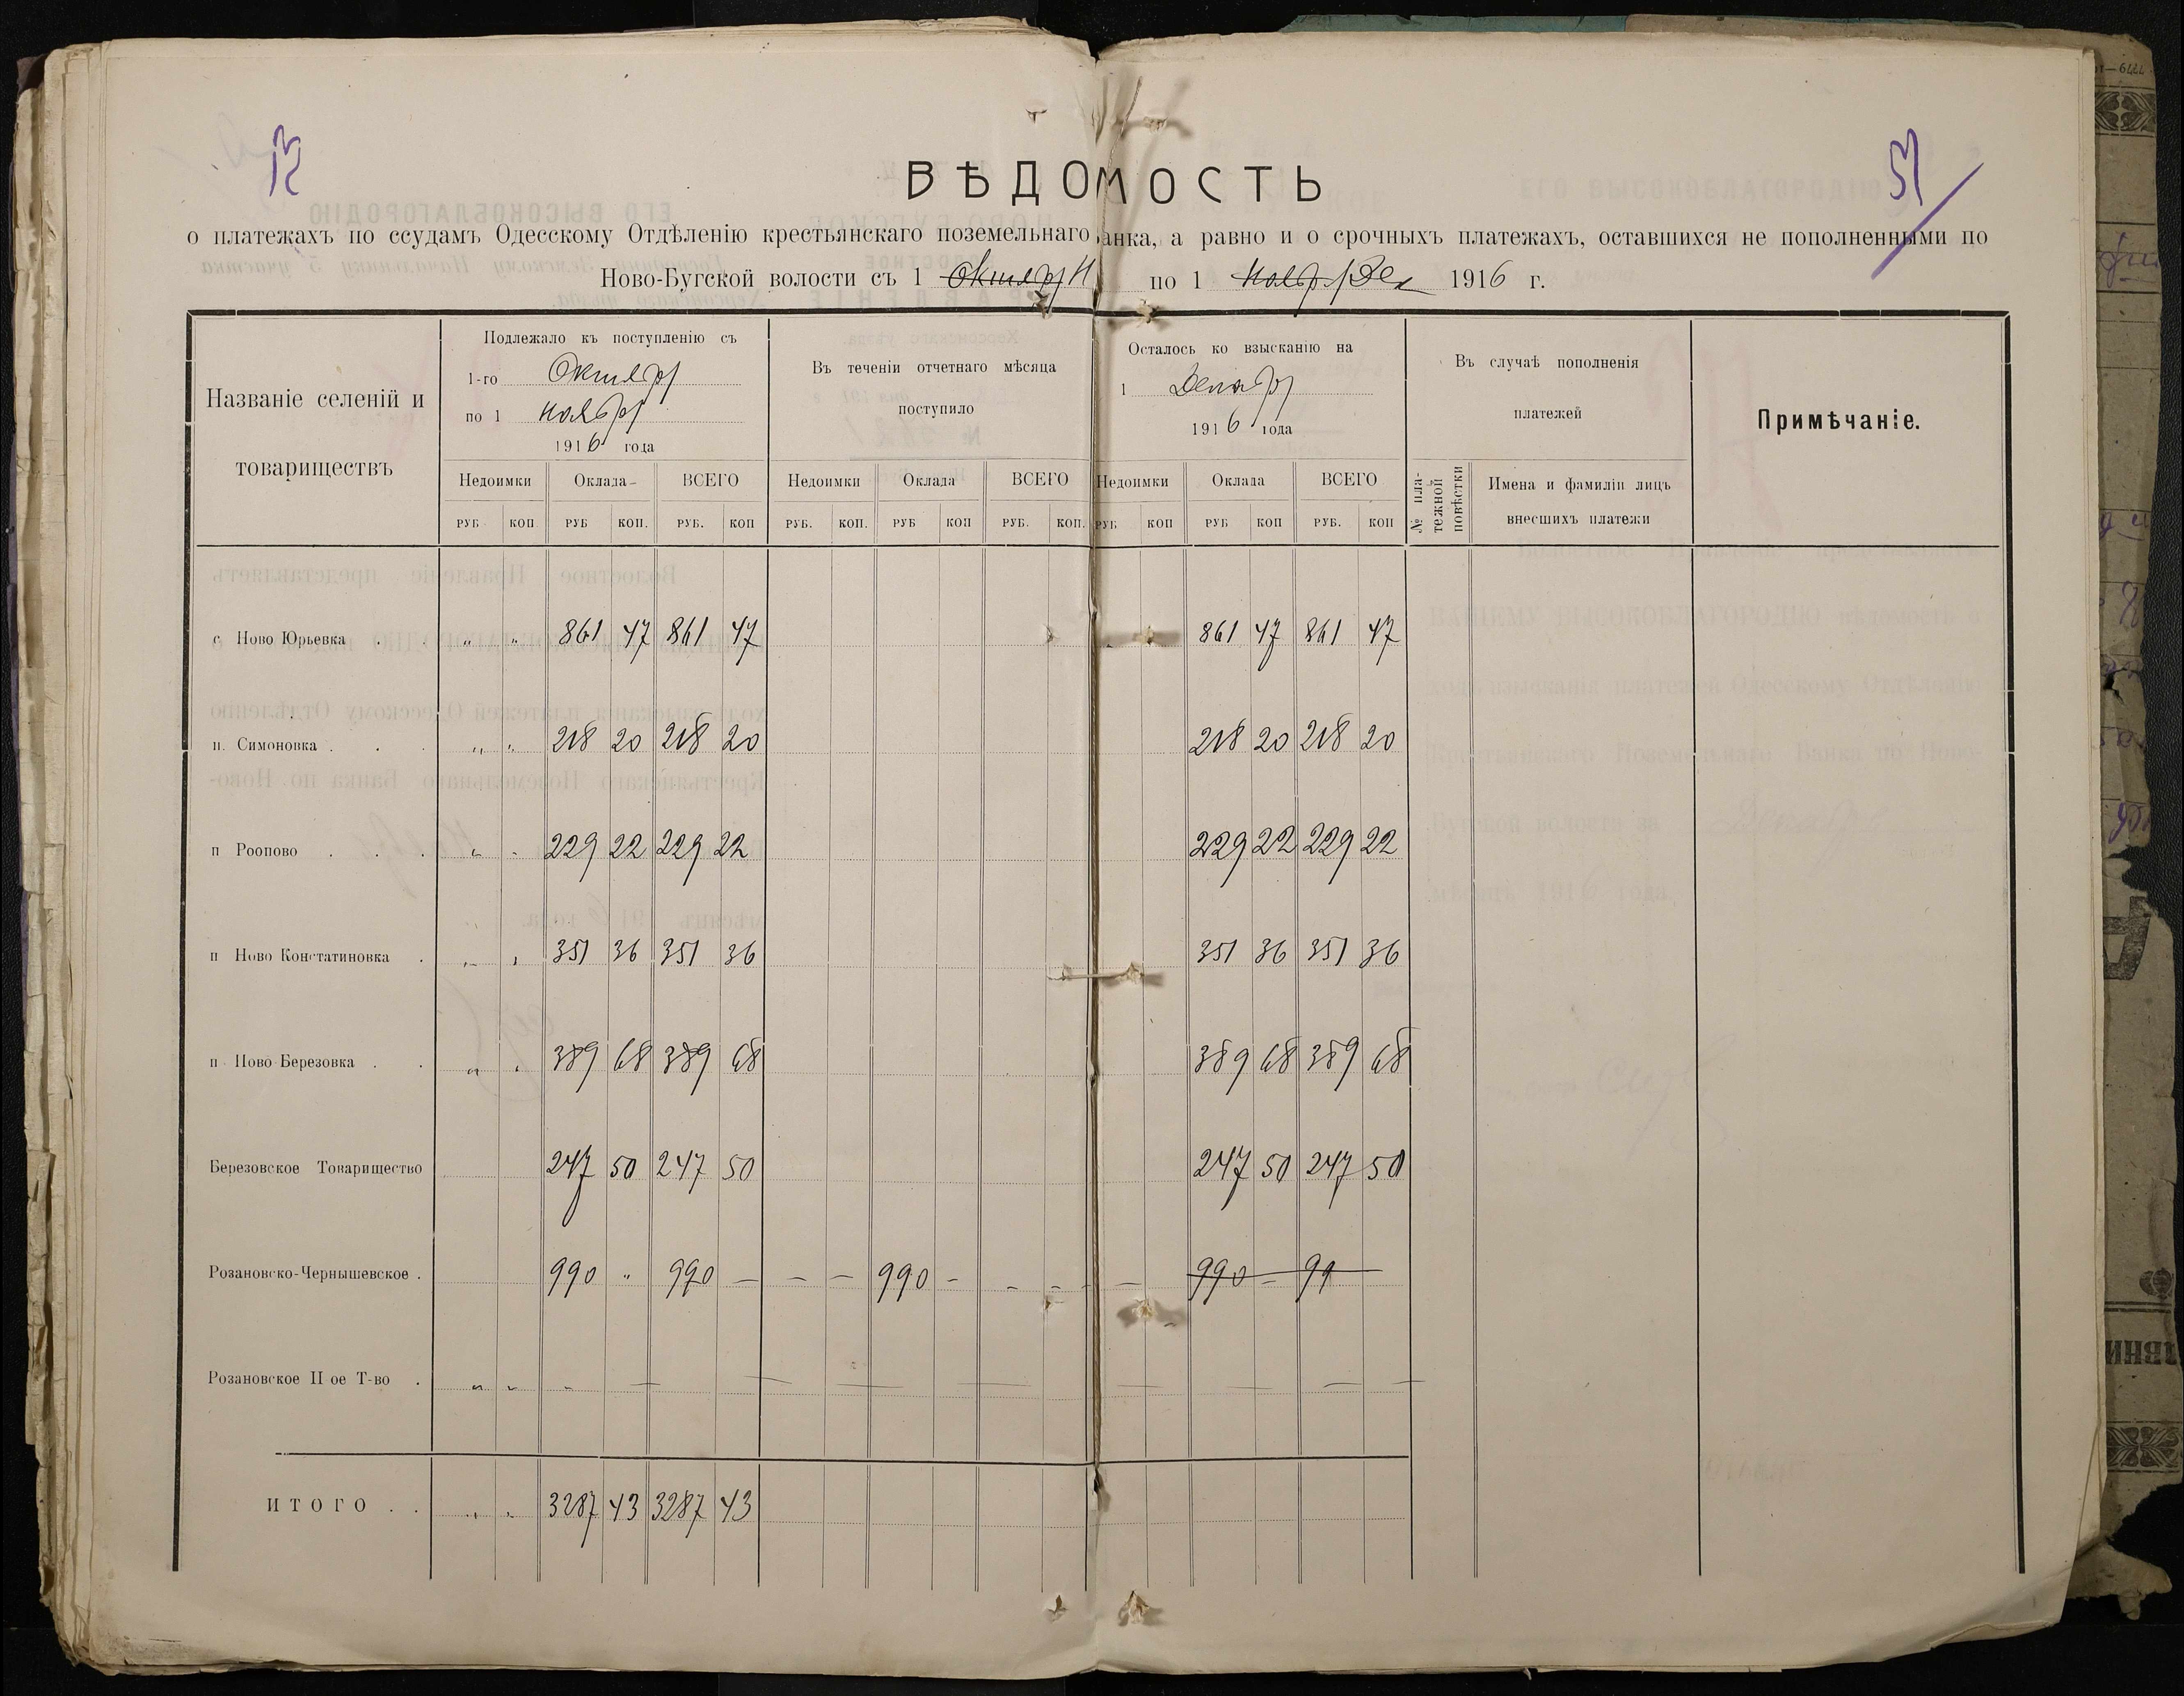 51
ВѢДОМОСТЬ
о платежахъ по ссудамъ Одесскому Отдѣленію крестьянскаго поземельнаго банка, а равно и о срочныхъ платежахъ, оставшихся не пополненными по
Ново-Бугской волости съ 1 по 1 1916 г.
Названіе селеній и товариществъ
Подлежало къ поступленію съ
1-го Октябр
по 1 Ноябр
1916 года
Въ теченіи отчетнаго мѣсяца
поступило
Осталось ко взысканію на
1 Декабр
1916 года
Въ случаѣ пополненія
платежей
Примѣчаніе.
Недоимки Оклада ВСЕГО Недоимки Оклада ВСЕГО Недоимки Оклада ВСЕГО
№ пла-
тежной
повѣстки
Имена и фамиліи лицъ
внесшихъ платежи
РУБ КОП РУБ КОП. РУБ. КОП РУБ. КОП. РУБ КОП РУБ. КОП. РУБ КОП РУБ КОП РУБ. КОП
с Ново Юрьевка . . „ „ 861 47 861 47 861 47 861 47
п. Симоновка . . . „ „ 218 20 218 20 218 20 218 20
п Роопово . . . „ „ 229 22 229 22 229 22 229 22
п Ново Констатиновка . „ „ 351 36 351 36 351 36 351 36
п Ново Березовка . . „ „ 389 68 389 68 389 68 389 68
Березовское Товарищество 247 50 247 50 247 50 247 50
Розановско-Чернышевское . 990 „ 990 — — — 990 - - - - — 990 — 99
Розановское II ое Т-во . „ „ „ — — — — — — — — — —
ИТОГО . . „ „ 3287 43 3287 43